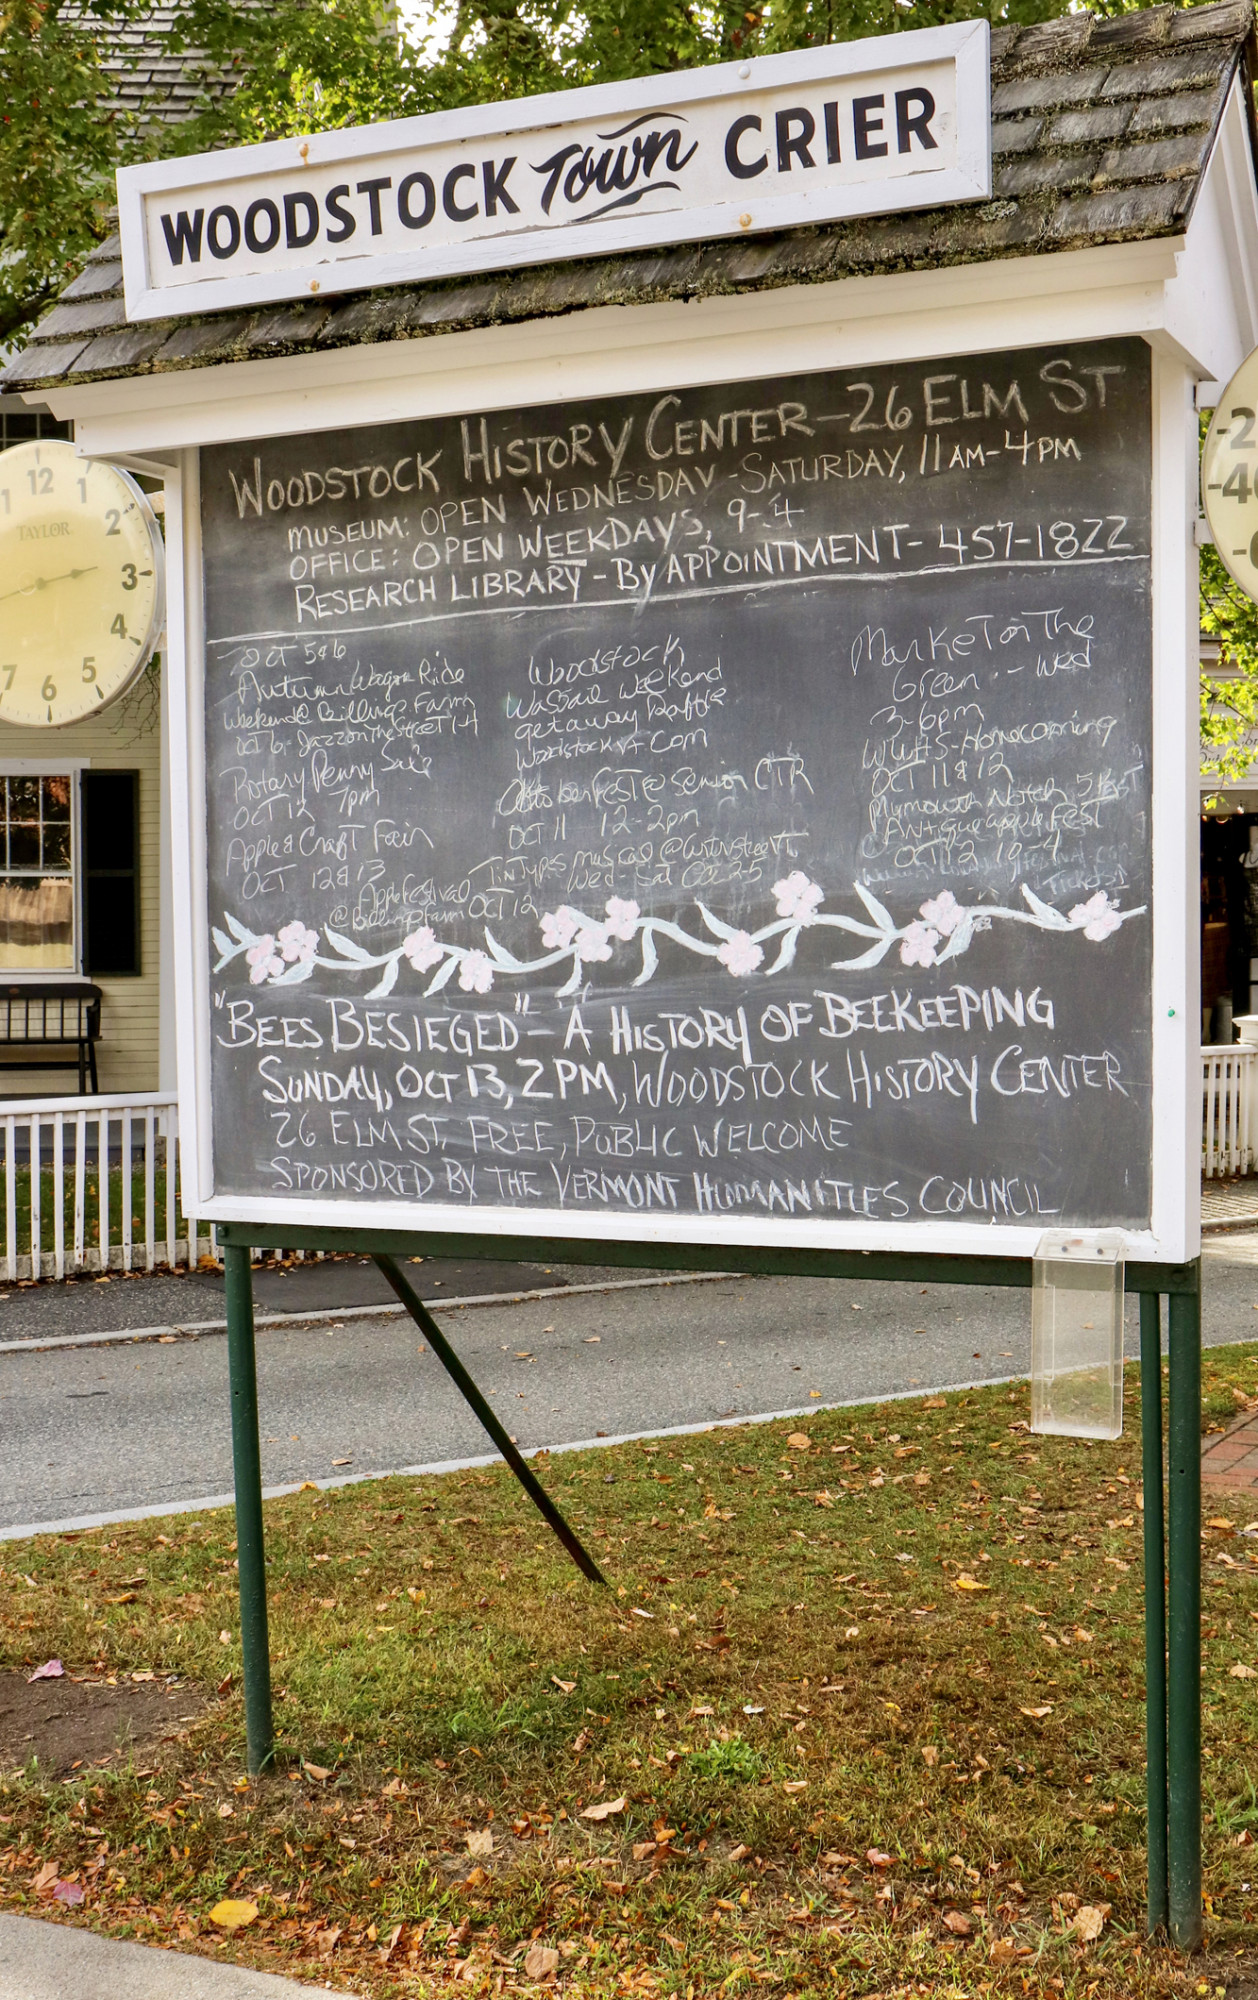 WOODSTOCK Town CRIER
WOODSTOCK HISTORY CENTER-26 ELM ST
MUSEUM: OPEN WEDNESDAY-SATURDAY, 11AM-4PM
OFFICE: OPEN WEEKDAYS, 9-4
RESEARCH LIBRARY-By APPOINTMENT-457-1822
OCT 5&6
Autumn Wagon Ride
Weekend@ Billings Farm
Oct 6-Jazz on the Street 1-4
Rotary Penny Sale
OCT 12 7pm
Apple & Craft Fair
OCT 12&13
@ Billings Farm OCT 12
Woodstock
Wassail Weekend
getaway Raffle
Woodstockvt.com
@ Senior CTR
OCT 11 12-2pm
Wed-Sat Oct 2-5
Market on The
Green.-Wed
3-6pm
WUHS-Homecoming
OCT 11&12
Plymouth Notch
OCT 12 10-4
"BEES BESIEGED"-A HISTORY OF BEEKEEPING
SUNDAY, OCT 13, 2PM, WOODSTOCK HISTORY CENTER
26 ELM ST, FREE, PUBLIC WELCOME
SPONSORED BY THE VERMONT HUMANITIES COUNCIL
12
1
2
3
4
5
6
7
TAYLOR